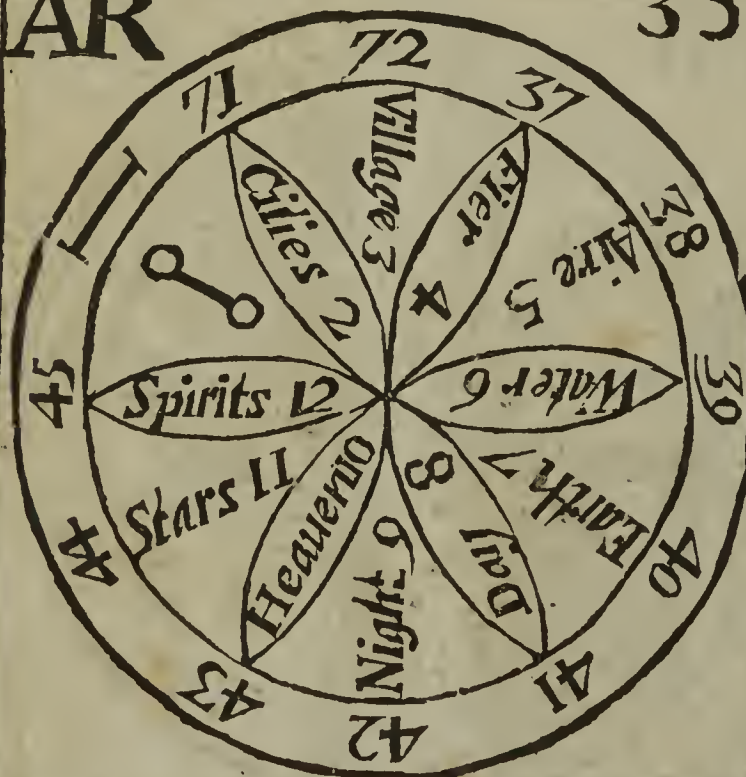 AR
35
72
37
38
39
40
41
42
43
44
45
II
71
Citiies 2
Village 3
Fier 4
Aire 5
Water 6
Earth 7
Day 8
Night 9
Heauen 10
Stars 11
Spirits 12